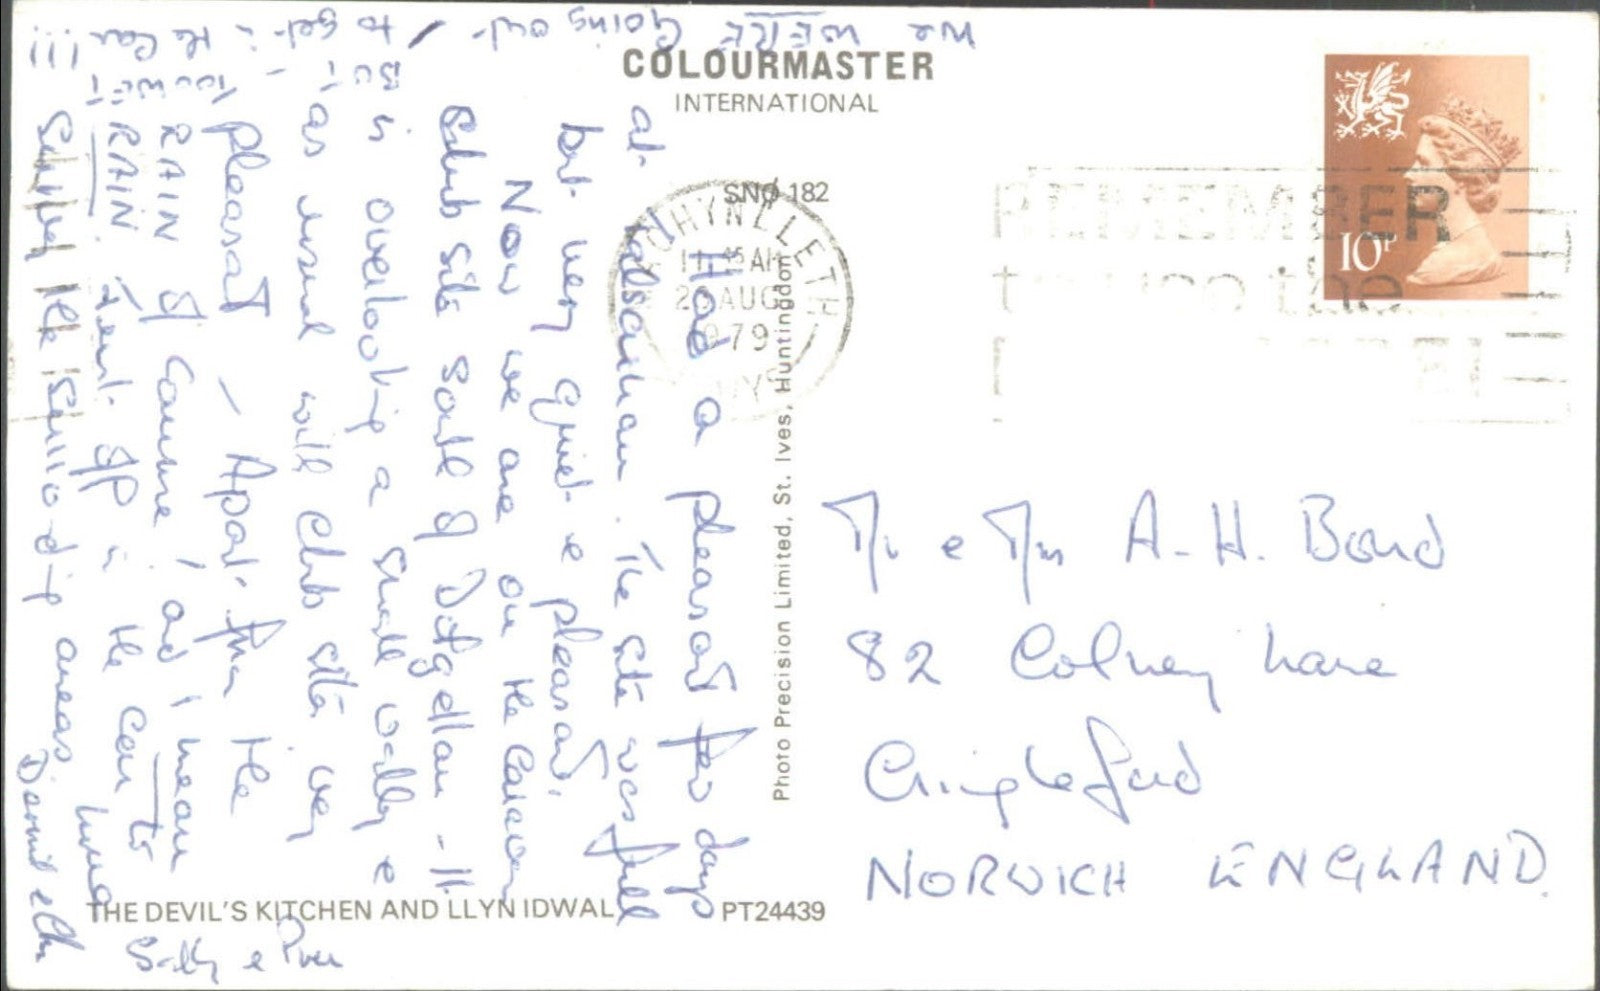 COLOURMASTER
INTERNATIONAL
SNØ 182
MACHYNLLETH
11 45 AM
AUG
1979
REMEMBER
to use the
10P
Had a pleasant few days
at Talsarnau. The site was full
but very quiet & pleasant.
Now we are on the Caravan
Club site South of Dolgellau - It
is overlooking a small valley &
as usual with Club site very
pleasant - Apart from the
RAIN of course, and I mean
RAIN. Went up in the car to
the surrounding areas.
Love
David &
Sally &
We WERE going out
BUT - to get in the Car
TOO WET !!!
Mr & Mrs A-H. Bond
82 Colney Lane
Cringleford
NORWICH ENGLAND.
Photo Precision Limited, St. Ives, Huntingdon
THE DEVIL'S KITCHEN AND LLYN IDWAL
PT24439